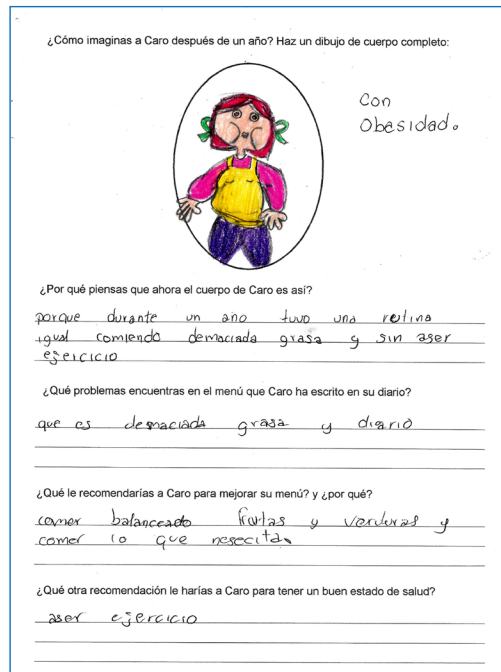 ¿Cómo imaginas a Caro después de un año? Haz un dibujo de cuerpo completo:
Con
Obesidad.
¿Por qué piensas que ahora el cuerpo de Caro es así?
porque durante un año tuvo una rutina
igual comiendo demaciada grasa y sin aser
esercicio
¿Qué problemas encuentras en el menú que Caro ha escrito en su diario?
que es desmaciada grasa y diario
¿Qué le recomendarías a Caro para mejorar su menú? y ¿por qué?
comer balanceado frutas y verduras y
comer lo que nesecita.
¿Qué otra recomendación le harías a Caro para tener un buen estado de salud?
aser ejercicio